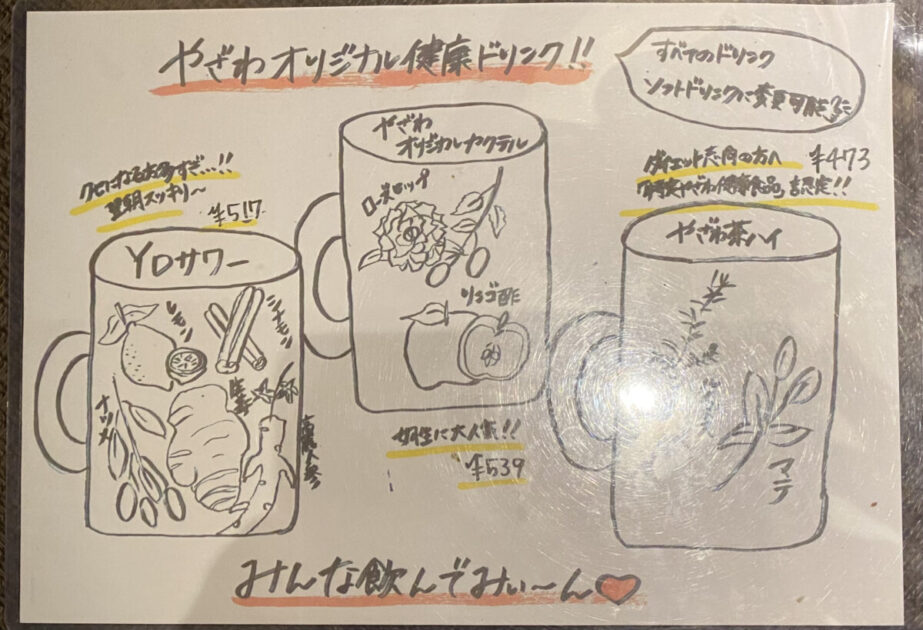 やざわオリジナル健康ドリンク!!
すべてのドリンク
ソフトドリンクに変更可能
クセになる
翌朝スッキリ〜
¥517
YDサワー
レモン
シナモン
ナツメ
生姜
高麗人参
やざわ
オリジナルカクテル
ローズヒップ
リンゴ酢
女性に大人気!!
¥539
ダイエット志向の方へ
¥473
やざわ健康食品」認定!!
やざわ茶ハイ
マテ
みんな飲んでみぃ〜ん